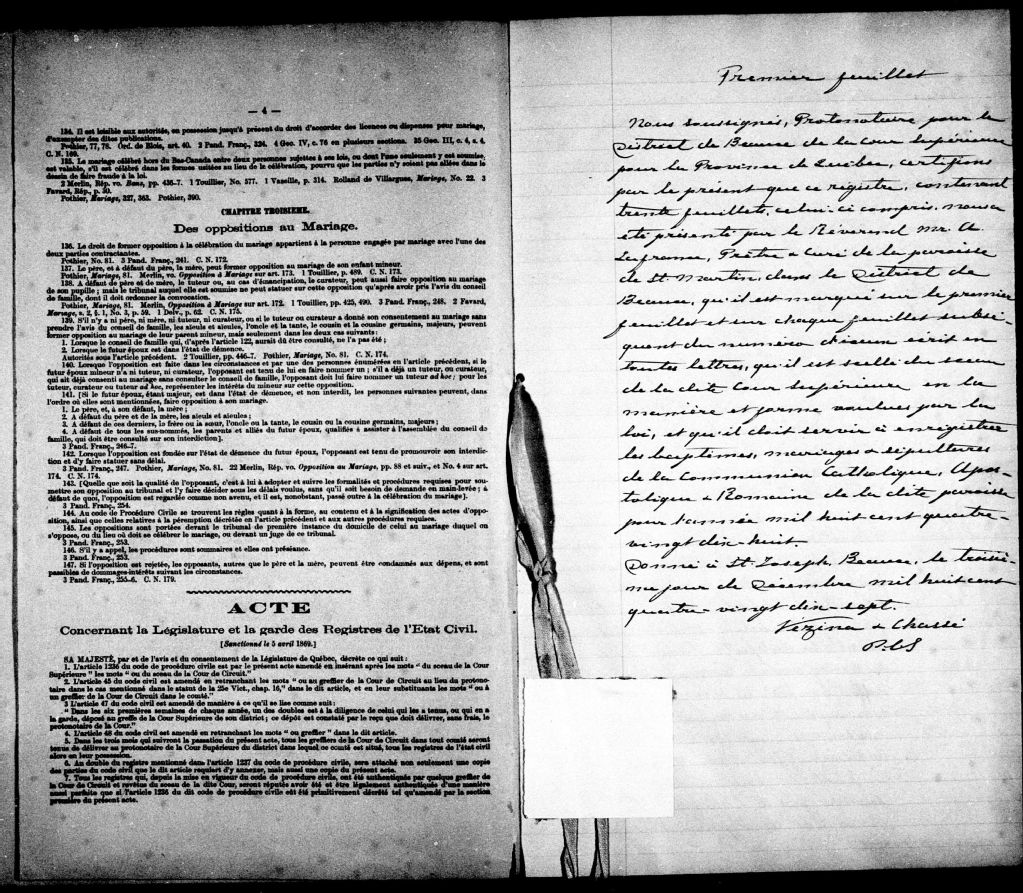 — 4 —
134. Il est loisible aux autorités, en possession jusqu'à présent du droit d'accorder des licences ou dispenses pour mariage,
d'exempter des dites publications.
Pothier, 77, 78. Ord. de Blois, art. 40. 2 Pand. Franç., 324. 4 Geo. IV, c. 76 en plusieurs sections. 35 Geo. III, c. 4, s. 4.
C. N. 169.
135. Le mariage célébré hors du Bas-Canada entre deux personnes sujettes à ses lois, ou dont l'une seulement y est soumise,
est valable, s'il est célébré dans les formes usitées au lieu de la célébration, pourvu que les parties n'y soient pas allées dans le
dessin de faire fraude à la loi.
2 Merlin, Rép. vo. Bans, pp. 435-7. 1 Touillier, No. 577. 1 Vazeille, p. 314. Rolland de Villargues, Mariage, No. 22. 3
Favard, Rép., p. 50.
Pothier, Mariage, 327, 363. Pothier, 390.
CHAPITRE TROISIEME.
Des oppositions au Mariage.
136. Le droit de former opposition à la célébration du mariage appartient à la personne engagée par mariage avec l'une des
deux parties contractantes.
Pothier, No. 81. 3 Pand. Franç., 241. C. N. 172.
137. Le père, et à défaut du père, la mère, peut former opposition au mariage de son enfant mineur.
Pothier, Mariage, 81. Merlin, vo. Opposition à Mariage sur art. 173. 1 Touillier, p. 489. C. N. 173.
138. A défaut de père et de mère, le tuteur ou, au cas d'émancipation, le curateur, peut aussi faire opposition au mariage
de son pupille; mais le tribunal auquel elle est soumise ne peut statuer sur cette opposition qu'après avoir pris l'avis du conseil
de famille, dont il doit ordonner la convocation.
Pothier, Mariage, 81. Merlin, Opposition à Mariage sur art. 172. 1 Touillier, pp. 425, 490. 3 Pand. Franç., 248. 2 Favard,
Mariage, s. 2, §. 1, No. 3, p. 59. 1 Delv., p. 62. C. N. 175.
139. S'il n'y a ni père, ni mère, ni tuteur, ni curateur, ou si le tuteur ou curateur a donné son consentement au mariage sans
prendre l'avis du conseil de famille, les aïeuls et aïeules, l'oncle et la tante, le cousin et la cousine germains, majeurs, peuvent
former opposition au mariage de leur parent mineur, mais seulement dans les deux cas suivants:
1. Lorsque le conseil de famille qui, d'après l'article 122, aurait dû être consulté, ne l'a pas été;
2. Lorsque le futur époux est dans l'état de démence.
Autorités sous l'article précédent. 2 Touillier, pp. 446-7. Pothier, Mariage, No. 81. C. N. 174.
140. Lorsque l'opposition est faite dans les circonstances et par une des personnes énumérées en l'article précédent, si le
futur époux mineur n'a ni tuteur, ni curateur, l'opposant est tenu de lui en faire nommer un; s'il a déjà un tuteur, ou curateur,
qui ait déjà consenti au mariage sans consulter le conseil de famille, l'opposant doit lui faire nommer un tuteur ad hoc; pour les
tuteur, curateur ou tuteur ad hoc, représenter les intérêts du mineur sur cette opposition.
141. [Si le futur époux, étant majeur, est dans l'état de démence, et non interdit, les personnes suivantes peuvent, dans
l'ordre où elles sont mentionnées, faire opposition à son mariage.
1. Le père, et, à son défaut, la mère;
2. A défaut du père et de la mère, les aïeuls et aïeules;
3. A défaut de ces derniers, le frère ou la sœur, l'oncle ou la tante, le cousin ou la cousine germains, majeurs;
4. A défaut de tous les sus-nommés, les parents et alliés du futur époux, qualifiés à assister à l'assemblée du conseil de
famille, qui doit être consulté sur son interdiction].
3 Pand. Franç., 246-7.
142. Lorsque l'opposition est fondée sur l'état de démence du futur époux, l'opposant est tenu de promouvoir son interdic-
tion et d'y faire statuer sans délai.
3 Pand. Franç., 247. Pothier, Mariage, No. 81. 22 Merlin, Rép. vo. Opposition au Mariage, pp. 88 et suiv., et No. 4 sur art.
174. C. N. 174.
143. [Quelle que soit la qualité de l'opposant, c'est à lui à adopter et suivre les formalités et procédures requises pour sou-
mettre son opposition au tribunal et l'y faire décider sous les délais voulus, sans qu'il soit besoin de demande en main-levée; à
défaut de quoi, l'opposition est regardée comme non avenu, et il est, nonobstant, passé outre à la célébration du mariage].
3 Pand. Franç., 254.
144. Au code de Procédure Civile se trouvent les règles quant à la forme, au contenu et à la signification des actes d'oppo-
sition, ainsi que celles relatives à la péremption décrétée en l'article précédent et aux autres procédures requises.
145. Les oppositions sont portées devant le tribunal de première instance du domicile de celui au mariage duquel on
s'oppose, ou du lieu où doit se célébrer le mariage, ou devant un juge de ce tribunal.
3 Pand. Franç., 253.
146. S'il y a appel, les procédures sont sommaires et elles ont préséance.
3 Pand. Franç., 253.
147. Si l'opposition est rejetée, les opposants, autres que le père et la mère, peuvent être condamnés aux dépens, et sont
passibles de dommages-intérêts suivant les circonstances.
3 Pand. Franç., 255-6. C. N. 179.
ACTE
Concernant la Législature et la garde des Registres de l'Etat Civil.
[Sanctionné le 5 avril 1869.]
SA MAJESTÉ, par et de l'avis et du consentement de la Législature de Québec, décrète ce qui suit:
1. L'article 1236 du code de procédure civile est par le présent acte amendé en insérant après les mots "du sceau de la Cour
Supérieure" les mots "ou du sceau de la Cour de Circuit."
2. L'article 45 du code civil est amendé en retranchant les mots "ou au greffier de la Cour de Circuit au lieu du protono-
taire dans le cas mentionné dans le statut de la 25e Vict., chap. 16," dans le dit article, et en leur substituants les mots "ou à
un greffier de la Cour de Circuit dans le comté."
3 L'article 47 du code civil est amendé de manière à ce qu'il se lise comme suit:
"Dans les six premières semaines de chaque année, un des doubles est à la diligence de celui qui les a tenus, ou qui en a
la garde, déposé au greffe de la Cour Supérieure de son district; ce dépôt est constaté par le reçu que doit délivrer, sans frais, le
protonotaire de la Cour."
4. L'article 48 du code civil est amendé en retranchant les mots "ou greffier" dans le dit article.
5. Dans les trois mois qui suivront la passation du présent acte, tous les greffiers de la Cour de Circuit dans tout comté seront
tenus de délivrer au protonotaire de la Cour Supérieure du district dans lequel ce comté est situé, tous les registres de l'état civil
alors en leur possession.
6. Au double du registre mentionné dans l'article 1237 du code de procédure civile, sera attaché non seulement une copie
des parties du code civil que le dit article requiert d'y annexer, mais aussi une copie du présent acte.
7. Tous les registres qui, depuis la mise en vigueur du code de procédure civile, ont été authentiqués par quelque greffier de
la Cour de Circuit et revêtus du sceau de la dite Cour, seront réputés avoir été et être légalement authentiqués d'une manière
aussi parfaite que si l'article 1236 du dit code de procédure civile eût été primitivement décrété tel qu'amendé par la section
première du présent acte.
Premier feuillet
Nous soussignés, Protonotaire pour le
District de Beauce de la Cour Supérieure
pour la Province de Québec, certifions
par le présent que ce registre, contenant
trente feuillets, celui-ci compris, nous a
été présenté par le Révérend Mr. A.
Lafrance, Prêtre & curé de la paroisse
de St. Martin, dans le District de
Beauce, qu'il est marqué sur le premier
feuillet et sur chaque feuillet subsé-
quent du numéro d'iceux écrit en
toutes lettres, qu'il est scellé du sceau
de la dite Cour Supérieure en la
manière et forme voulues par la
loi, et qu'il doit servir à enregistrer
les baptêmes, mariages & sépultures
de la Communion Catholique, Apos-
tolique & Romaine de la dite paroisse
pour l'année mil huit cent quatre-
vingt dix-huit
Donné à St. Joseph, Beauce, le troisiè-
me jour de Décembre mil huit cent
quatre-vingt dix-sept.
Vézina & Chassé
P.C.S